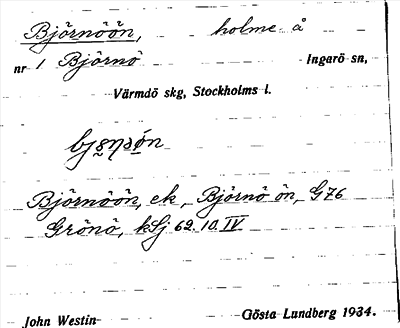 Björnöön, holme å
nr 1 Björnö Ingarö sn,
Värmdö skg, Stockholms l.
Björnöön, ek, Björnö ön, G76
Grönö, kSj 62. 10. IV
John Westin Gösta Lundberg 1934.